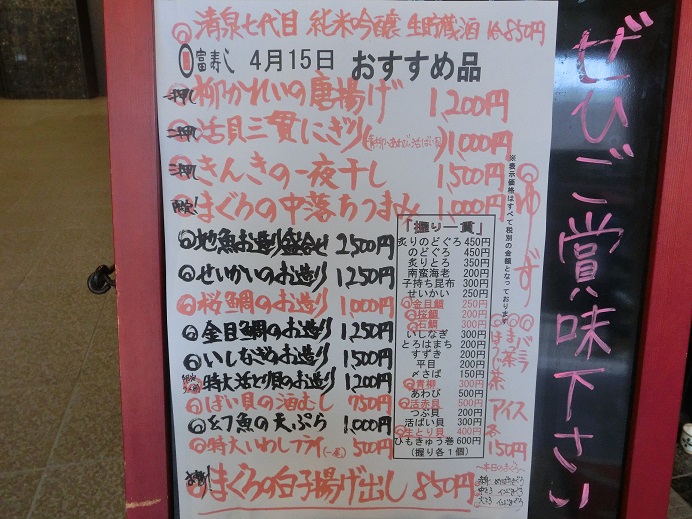 清泉七代目 純米吟醸 生貯蔵酒 850円
富寿し 4月15日 おすすめ品
一押し 柳かれいの唐揚げ 1,200円
二押し 活貝三貫にぎり 1,000円
三押し きんきの一夜干し 1,500円
まぐろの中落ちつまみ 1,000円
地魚お造り盛合せ 2,500円
せいかいのお造り 1,250円
桜鯛のお造り 1,000円
金目鯛のお造り 1,250円
いしなぎのお造り 1,500円
特大活とり貝のお造り 1,200円
ばい貝の酒むし 750円
幻魚の天ぷら 1,000円
特大いわしフライ 500円
まぐろの白子揚げ出し 850円
「握り一貫」
炙りのどぐろ 450円
のどぐろ 450円
炙りとろ 350円
南蛮海老 200円
子持ち昆布 300円
せいかい 250円
金目鯛 250円
桜鯛 200円
石鯛 300円
いしなぎ 300円
とろはまち 200円
すずき 200円
平目 200円
〆さば 150円
青柳 300円
あわび 500円
活赤貝 500円
つぶ貝 200円
活ばい貝 300円
生とり貝 400円
ひもきゅう巻 600円
(握り各1個)
※表示価格はすべて税別の金額となっております
ゆず
バニラ
抹茶
ほうじ茶
アイス
各150円
〜本日のまぐろ〜
ぜひご賞味下さい